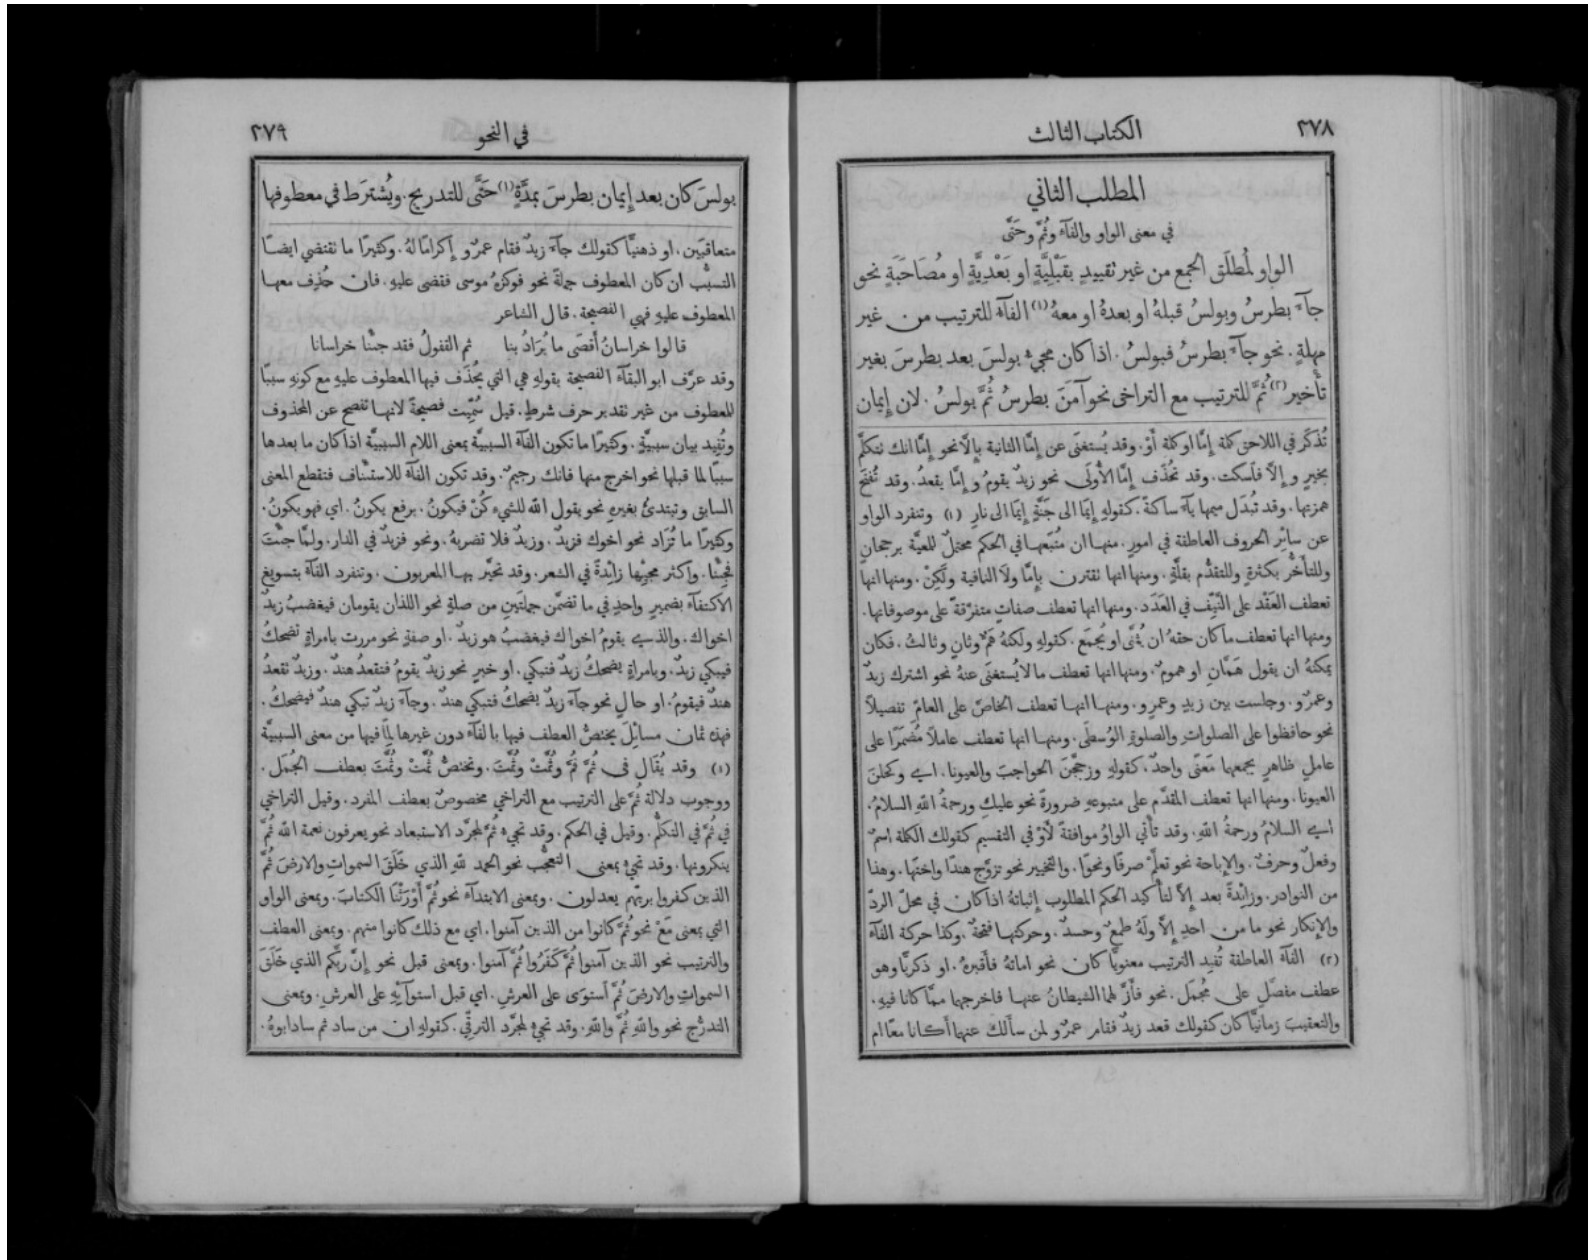 ٣٧٨
الكتاب الثالث
المطلب الثاني
في معنى الواو والفآء وثُمَّ وحَتَّى
الواو لمُطلَق الجمع من غير تقييدٍ بقَبْليَّةٍ او بَعْديَّةٍ او مُصَاحَبَةٍ نحو
جآءَ بطرسُ وبولسُ قبلهُ او بعدهُ او معهُ (١) الفآء للترتيب من غير
مهلةٍ. نحو جآءَ بطرسُ فبولسُ. اذا كان مجيءُ بولسَ بعد بطرسَ بغير
تأخير (٢) ثُمَّ للترتيب مع التراخى نحو آمَنَ بطرسُ ثُمَّ بولسُ. لان إِيمان
تُذكَر في اللاحق كلمة إِمَّا او كلمة أَوْ. وقد يُستغنَى عن إِمَّا الثانية بإِلاَّ نحو إِمَّا انك نتكلَّم
بخيرٍ وإِلاَّ فاَسكت. وقد تُحذَف إِمَّا الأُولَى نحو زيدٌ يقومُ وإِمَّا يقعدُ. وقد تُفتَح
همزتها. وقد تُبدَل ميمها يآءً ساكنةً. كقولهِ إِيمَا الى جَنَّةٍ إِيمَا الى نارِ (١) وتنفرد الواو
عن سائِر الحروف العاطفة في امورٍ. منها ان مُتبَّعها في الحكم محتملٌ للمعيَّة برجحانٍ
وللتأَخُّر بكثرةٍ وللتقدُّم بقلَّةٍ. ومنها انها تقترن بإِمَّا ولاَ النافية ولكِنْ. ومنها انها
تعطف العَقْد على النَّيِّف في العَدَد. ومنها انها تعطف صفاتٍ متفرّقةً على موصوفاتها.
ومنها انها تعطف ما كان حقهُ ان يُثنَّى او يُجمَع. كقولهِ ولكنهُ همٌّ وثانٍ وثالثُ. فكان
يمكنهُ ان يقول هَمَّانِ او همومٌ. ومنها انها تعطف ما لا يُستغنَى عنهُ نحو اشترك زيدٌ
وعمرٌو. وجلست بين زيدٍ وعمرٍو. ومنها انها تعطف الخاصّ على العامّ تفصيلاً
نحو حافظوا على الصلواتِ والصلوةِ الوُسطَى. ومنها انها تعطف عاملاً مُضمَرًا على
عاملٍ ظاهرٍ يجمعهما مَعنًى واحدٌ. كقولهِ وزججْنَ الحواجبَ والعيونا. اي وكحلنَ
العيونا. ومنها انها تعطف المقدَّم على متبوعهِ ضرورةً نحو عليكِ ورحمةُ اللهِ السلامُ.
اي السلامُ ورحمةُ اللهِ. وقد تأتي الواوُ موافقةً لأَوْ في التقسيم كقولك الكلمة اسمٌ
وفعلٌ وحرفٌ. والإِباحة نحو تعلَّمْ صرفًا ونحوًا. والتخيير نحو تزوَّج هندًا واختها. وهذا
من النوادر. وزائِدةً بعد إِلاَّ لتأكيد الحكم المطلوب إِثباتهُ اذا كان في محلّ الردّ
والإِنكار نحو ما من احدٍ إِلاَّ ولَهُ طمعٌ وحسدٌ. وحركتها فتحةٌ. وكذا حركة الفآء
(٢) الفآءُ العاطفة تُفيد الترتيب معنويًّا كان نحو اماتهُ فأَقبرهُ. او ذكريًّا وهو
عطف مفصَّلٍ على مُجمَل. نحو فأَزلَّهما الشيطانُ عنها فاخرجهما ممَّا كانا فيهِ.
والتعقيبَ زمانيًّا كان كقولك قعد زيدٌ فقام عمرٌو لمن سأَلك عنهما أَكانا معًا ام
في النحو
٣٧٩
بولسَ كان بعد إِيمان بطرسَ بمدَّةٍ (١) حَتَّى للتدريج. ويُشترَط في معطوفها
متعاقبَين. او ذهنيًّا كقولك جآءَ زيدٌ فقام عمرٌو إِكرامًا لهُ. وكثيرًا ما تقتضي ايضًا
التسبُّب ان كان المعطوف جملةً نحو فوكزهُ موسى فقضى عليهِ. فان حُذِف معها
المعطوف عليهِ فهي الفصيحة. قال الشاعر
قالوا خراسانُ أَقصَى ما يُرَادُ بنا   ثم القفولُ فقد جئْنا خراسانا
وقد عرَّف ابو البقآء الفصيحة بقولهِ هي التي يُحذَف فيها المعطوف عليهِ مع كونهِ سببًا
للمعطوف من غير تقدير حرف شرطٍ. قيل سُمِّيت فصيحةً لانها تفصح عن المحذوف
وتُفِيد بيان سببيَّةٍ. وكثيرًا ما تكون الفآءُ السببيَّة بمعنى اللام السببيَّة اذا كان ما بعدها
سببًا لما قبلها نحو اخرج منها فانك رجيمٌ. وقد تكون الفآءُ للاستئناف فتقطع المعنى
السابق وتبتدئُ بغيرهِ نحو يقول الله للشيءِ كُنْ فيكونُ. برفع يكونُ. اي فهو يكونُ.
وكثيرًا ما تُزَاد نحو اخوك فزيدٌ. وزيدٌ فلا تضربهُ. ونحو فزيدٌ في الدار. ولمَّا جئْتَ
فجئْنا. وأكثر مجيئِها زائِدةً في الشعر. وقد تحيَّر بها المعربون. وتنفرد الفآءُ بتسويغ
الاكتفآءِ بضميرٍ واحدٍ في ما تضمَّن جملتَينِ من صلةٍ نحو اللذان يقومان فيغضبُ زيدٌ
اخواك. والذي يقومُ اخواك فيغضبُ هو زيدٌ. او صفةٍ نحو مررت بامراةٍ تضحكُ
فيبكي زيدٌ. وبامراةٍ يضحكُ زيدٌ فتبكي. او خبرٍ نحو زيدٌ يقومُ فتقعدُ هندٌ. وزيدٌ تقعدُ
هندٌ فيقومُ. او حالٍ نحو جآءَ زيدٌ يضحكُ فتبكي هندٌ. وجآءَ زيدٌ تبكي هندٌ فيضحكُ.
فهذه ثمان مسائِلَ يختصُّ العطف فيها بالفآء دون غيرها لِمَا فيها من معنى السببيَّة
(١) وقد يُقَال في ثُمَّ فُمَّ وثُمَّتْ وثُمَّتَ. وتختصُّ ثُمَّتْ وثُمَّتَ بعطف الجُمَل.
ووجوب دلالة ثُمَّ على الترتيب مع التراخي مخصوصٌ بعطف المفرد. وقيل التراخي
في ثُمَّ في التكلُّم. وقيل في الحكم. وقد تجيءُ ثُمَّ لمجرَّد الاستبعاد نحو يعرفون نعمة الله ثُمَّ
ينكرونها. وقد تجيءُ بمعنى التعجُّب نحو الحمد للهِ الذي خَلَقَ السمواتِ والارضَ ثُمَّ
الذين كفروا بربّهم يعدلون. وبمعنى الابتدآء نحو ثُمَّ أَوْرَثْنَا الكتابَ. وبمعنى الواو
التي بمعنى مَعْ نحو ثُمَّ كانوا من الذين آمنوا. اي مع ذلك كانوا منهم. وبمعنى العطف
والترتيب نحو الذين آمنوا ثُمَّ كَفَرُوا ثُمَّ آمنوا. وبمعنى قبل نحو إِنَّ ربَّكم الذي خَلَقَ
السمواتِ والارضَ ثُمَّ اَستوَى على العرشِ. اي قبل استوآئِهِ على العرش. وبمعنى
التدرُّج نحو واللهِ ثُمَّ واللهِ. وقد تجيءُ لمجرَّد الترقّي. كقولهِ ان من ساد ثم ساد ابوهُ.